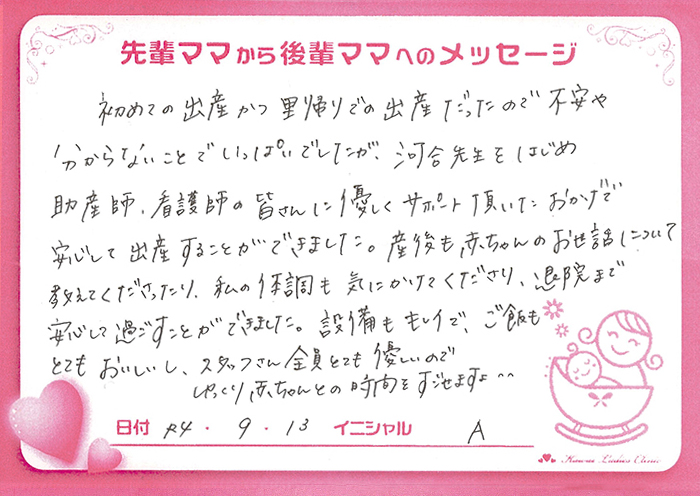 先輩ママから後輩ママへのメッセージ
初めての出産かつ里帰りでの出産だったので不安や
分からないことでいっぱいでしたが、河合先生をはじめ
助産師、看護師の皆さんに優しくサポート頂いたおかげで
安心して出産することができました。産後も赤ちゃんのお世話について
教えてくださったり、私の体調も気にかけてくださり、退院まで
安心して過ごすことができました。設備もキレイで、ご飯も
とてもおいしいし、スタッフさん全員とても優しいので
ゆっくり赤ちゃんとの時間をすごせますよ〜
日付 R4・9・13 イニシャル A
Kawai Ladies Clinic